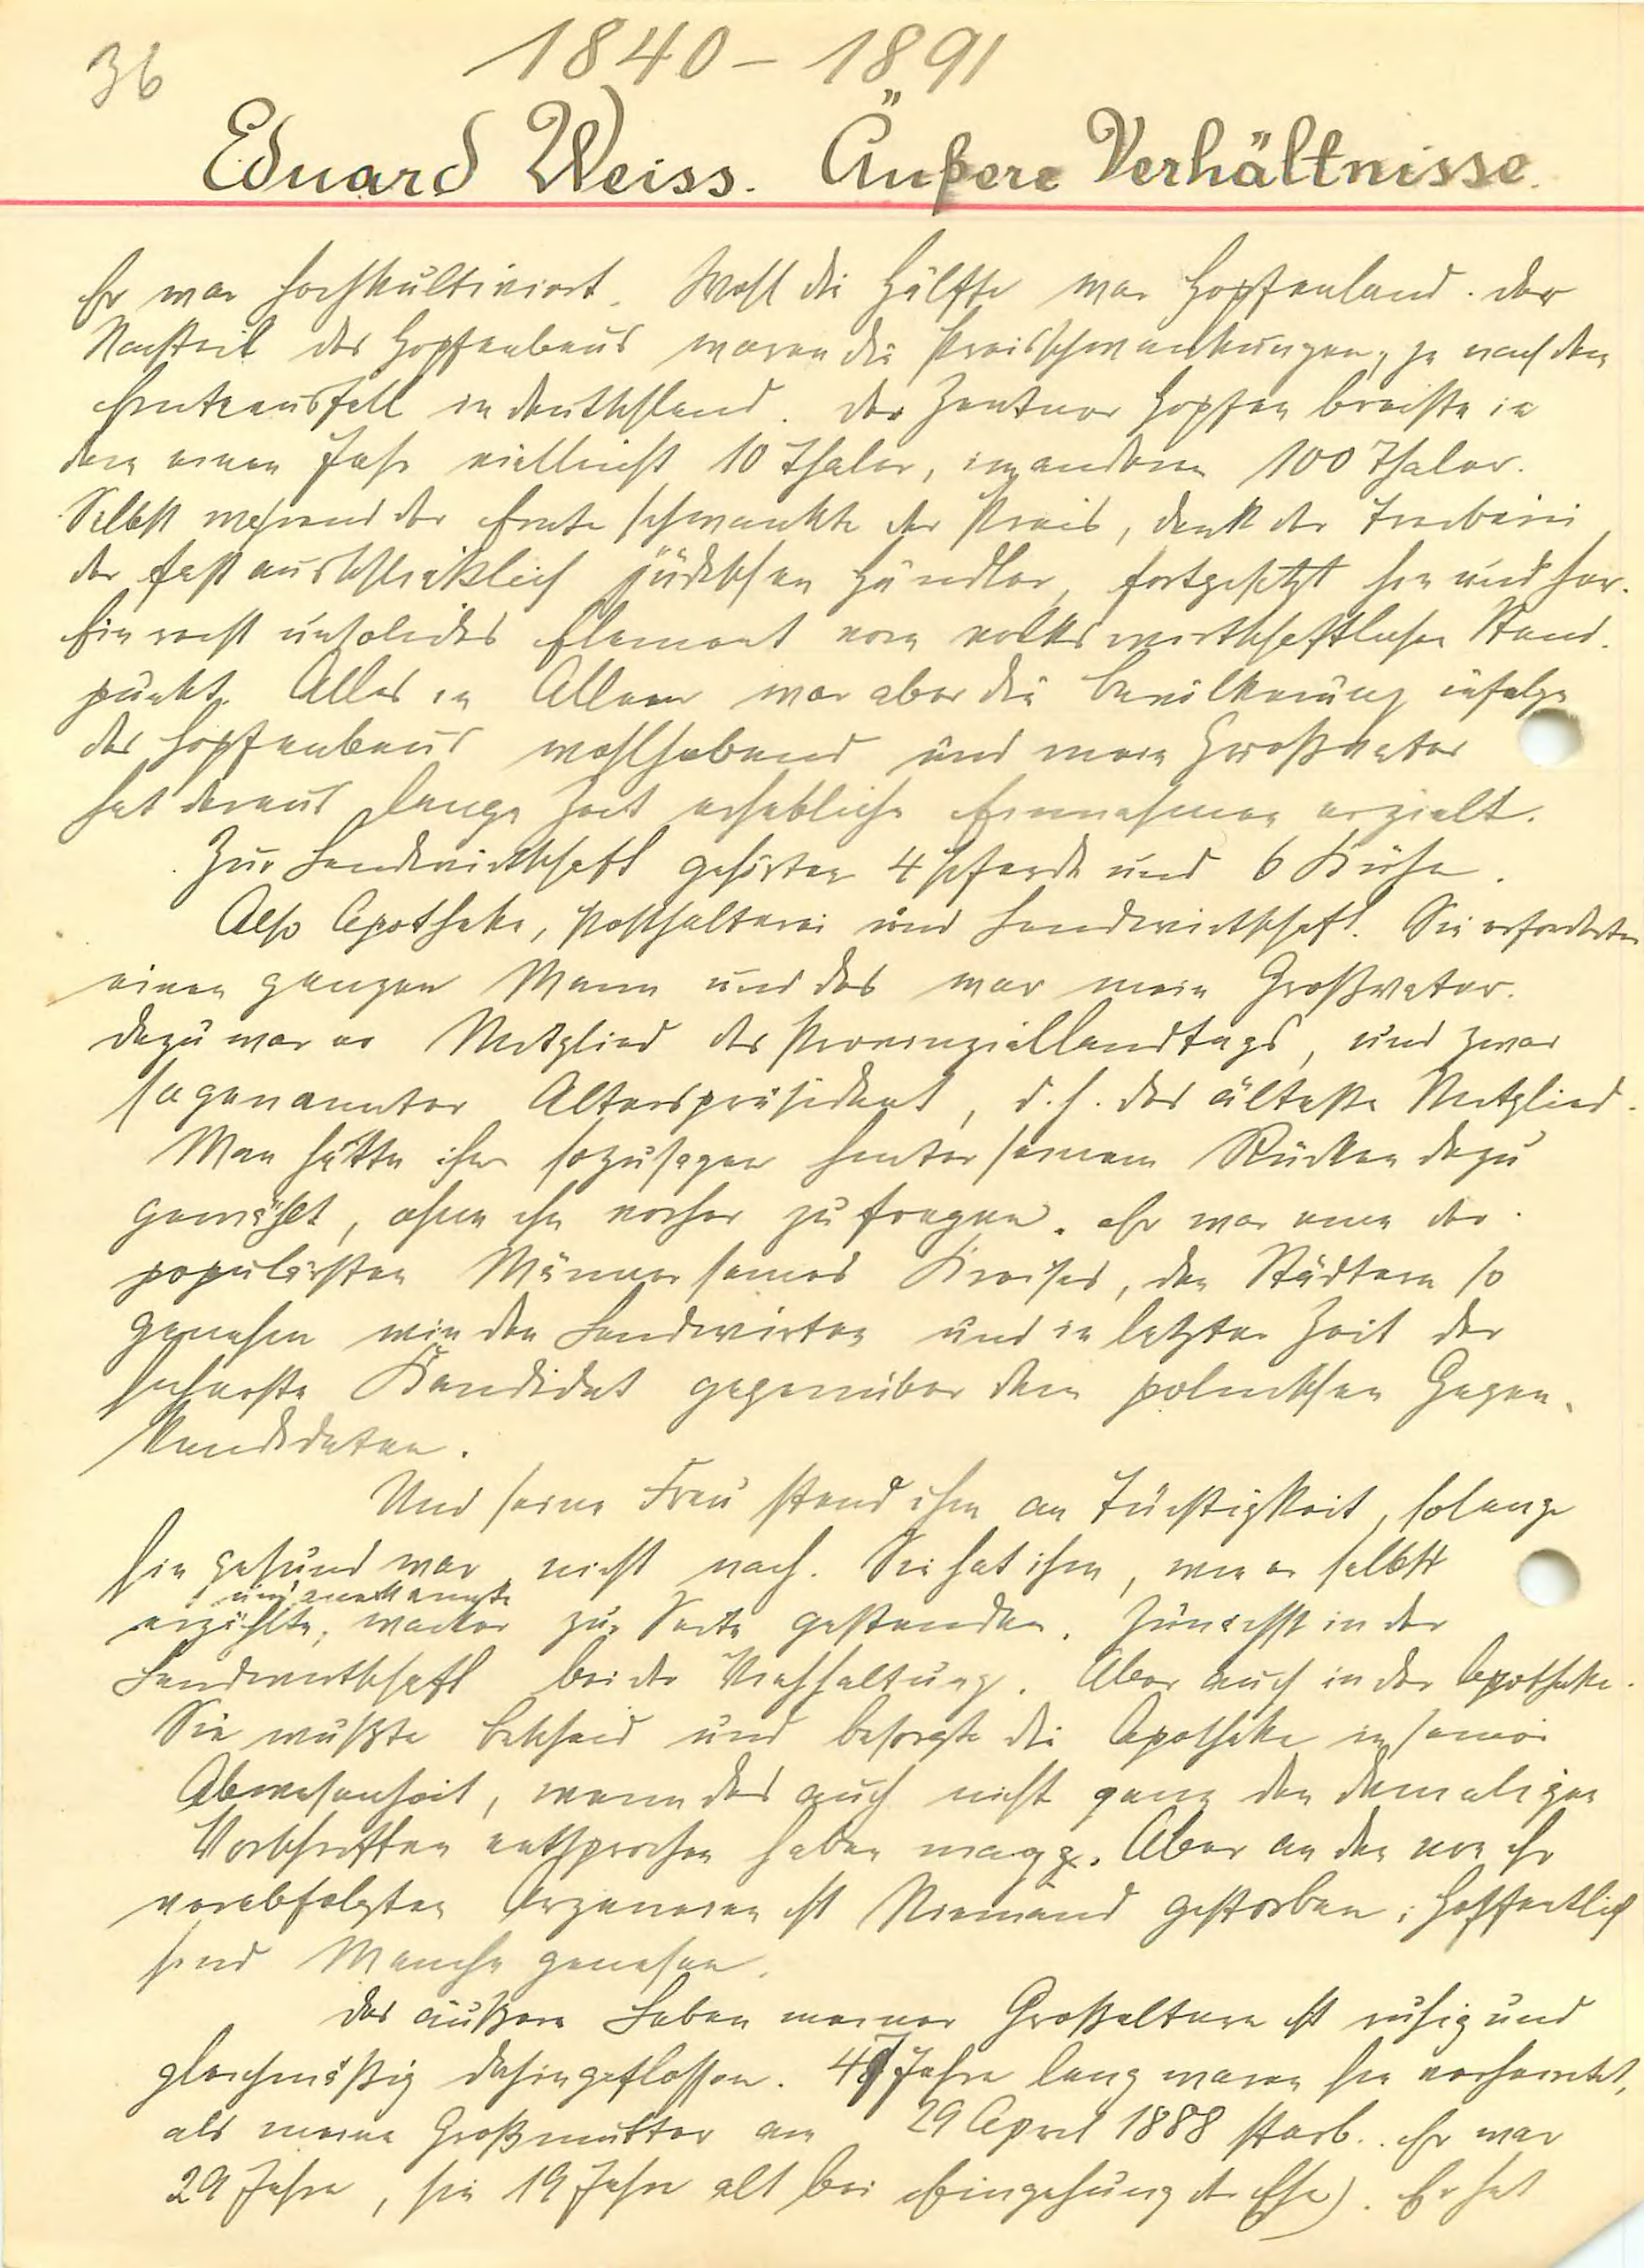 36
1840 – 1891
Eduard Weiss. Äußere Verhältnisse.
Er war hochkultiviert. Wohl die Hälfte war Hopfenland. Der
Nachteil des Hopfenbaus waren die Preisschwankungen, je nach dem
Ernteausfall in Deutschland. Der Zentner Hopfen brachte in
dem einen Jahr vielleicht 10 Thaler, im andern 100 Thaler.
Selbst während der Ernte schwankte der Preis, dank der Treiberei
der fast ausschließlich jüdischen Händler, fortgesetzt hin und her.
Ein recht unsolides Element vom volkswirthschaftlichen Stand-
punkt. Alles in Allem war aber die Bevölkerung infolge
des Hopfenbaus wohlhabend und mein Großvater
hat daraus lange Zeit erhebliche Einnahmen erzielt.
Zur Landwirthschaft gehörten 4 Pferde und 6 Kühe.
Also Apotheke, Posthalterei und Landwirthschaft. Sie erforderten
einen ganzen Mann und das war mein Großvater.
Dazu war er Mitglied des Provinziallandtags, und zwar
sogenannter Alterspräsident, d.h. das älteste Mitglied.
Man hatte ihn sozusagen hinter seinem Rücken dazu
gewählt, ohne ihn vorher zu fragen. Er war einer der
populärsten Männer seines Kreises, den Städtern so
genehm wie den Landwirten und in letzter Zeit der
sicherste Kandidat gegenüber dem polnischen Gegen-
kandidaten.
Und seine Frau stand ihm an Tüchtigkeit, solange
sie gesund war, nicht nach. Sie hat ihm, wie er selbst
und anerkannte
erzählte, wacker zur Seite gestanden. Zunächst in der
Landwirthschaft bei der Viehhaltung. Aber auch in der Apotheke.
Sie wußte Bescheid und besorgte die Apotheke in seiner
Abwesenheit, wenn das auch nicht ganz den damaligen
Vorschriften entsprochen haben mag. Aber an den von ihr
verabfolgten Arzeneien ist Niemand gestorben; hoffentlich
sind Manche genesen.
Das äußere Leben meiner Großeltern ist ruhig und
gleichmäßig dahingeflossen. 47 Jahre lang waren sie verheiratet,
als meine Großmutter am 29 April 1888 starb. Er war
29 Jahre, sie 19 Jahre alt bei Eingehung der Ehe). Er hat